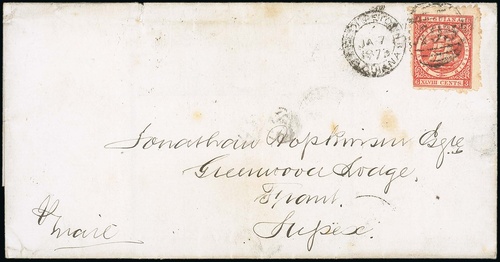 B. GUIANA
XLVIII CENTS
JA 7
1873
Jonathan Hopkinson Esqre
Greenwood Lodge,
Frant.
Sussex.
p mail